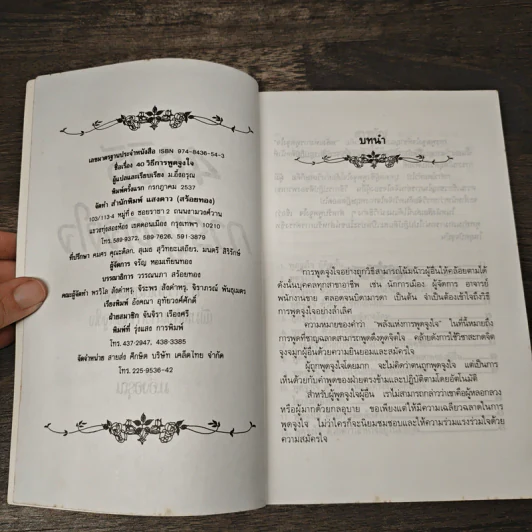 เลขมาตรฐานประจำหนังสือ ISBN 974-8436-54-3
ชื่อเรื่อง 40 วิธีการพูดจูงใจ
ผู้แปลและเรียบเรียง ม.อึ้งอรุณ
พิมพ์ครั้งแรก กรกฎาคม 2537
จัดทำ สำนักพิมพ์ แสงดาว (สร้อยทอง)
103/113-4 หมู่ที่ 6 ซอยราชา 2 ถนนงามวงศ์วาน
แขวงทุ่งสองห้อง เขตดอนเมือง กรุงเทพฯ 10210
โทร.589-9372, 589-7626, 591-3879
ที่ปรึกษา คมศร คุณะดิลก. สุเมธ สุวิทยะเสถียร. มนตรี สิริรักษ์
ผู้จัดการ จรัญ หอมเทียนทอง
บรรณาธิการ วรรณนภา สร้อยทอง
คณะผู้จัดทำ พรวิไล สังคำหรุ. จิระพร สังคำหรุ. จิราภรณ์ พันธุเมตร
เรียงพิมพ์ อังคณา อุทัยวงศ์ศักดิ์
ฝ่ายสมาชิก จันจิรา เรืองศรี
พิมพ์ที่ รุ่งแสง การพิมพ์
โทร.437-2947, 438-3385
จัดจำหน่าย สายส่ง ศึกษิต บริษัท เคล็ดไทย จำกัด
โทร.225-9536-42
บทนำ
การพูดจูงใจอย่างถูกวิธีสามารถโน้มน้าวผู้อื่นให้คล้อยตามได้
ดังนั้นบุคคลทุกสาขาอาชีพ เช่น นักการเมือง ผู้จัดการ อาจารย์
พนักงานขาย ตลอดจนบิดามารดา เป็นต้น จำเป็นต้องเข้าใจถึงวิธี
การพูดจูงใจอย่างล้ำเลิศ
ความหมายของคำว่า "พลังแห่งการพูดจูงใจ" ในที่นี้หมายถึง
การพูดที่ชาญฉลาดสามารถดึงดูดจิตใจ คล้ายดังการใช้เวทสะกดจิต
จูงจมูกผู้อื่นด้วยความยินยอมและสมัครใจ
ผู้ถูกพูดจูงใจโดยมาก จะไม่คิดว่าตนถูกพูดจูงใจ แต่เป็นการ
เห็นด้วยกับคำพูดของฝ่ายตรงข้ามและปฏิบัติตามโดยอัตโนมัติ
สำหรับผู้พูดจูงใจผู้อื่น เราไม่สามารถกล่าวว่าเขาคือผู้หลอกลวง
หรือผู้มากด้วยกลอุบาย ขอเพียงแต่ให้มีความเฉลียวฉลาดในการ
พูดจูงใจ ไม่ว่าใครก็จะนิยมชมชอบและให้ความร่วมแรงร่วมใจด้วย
ความสมัครใจ